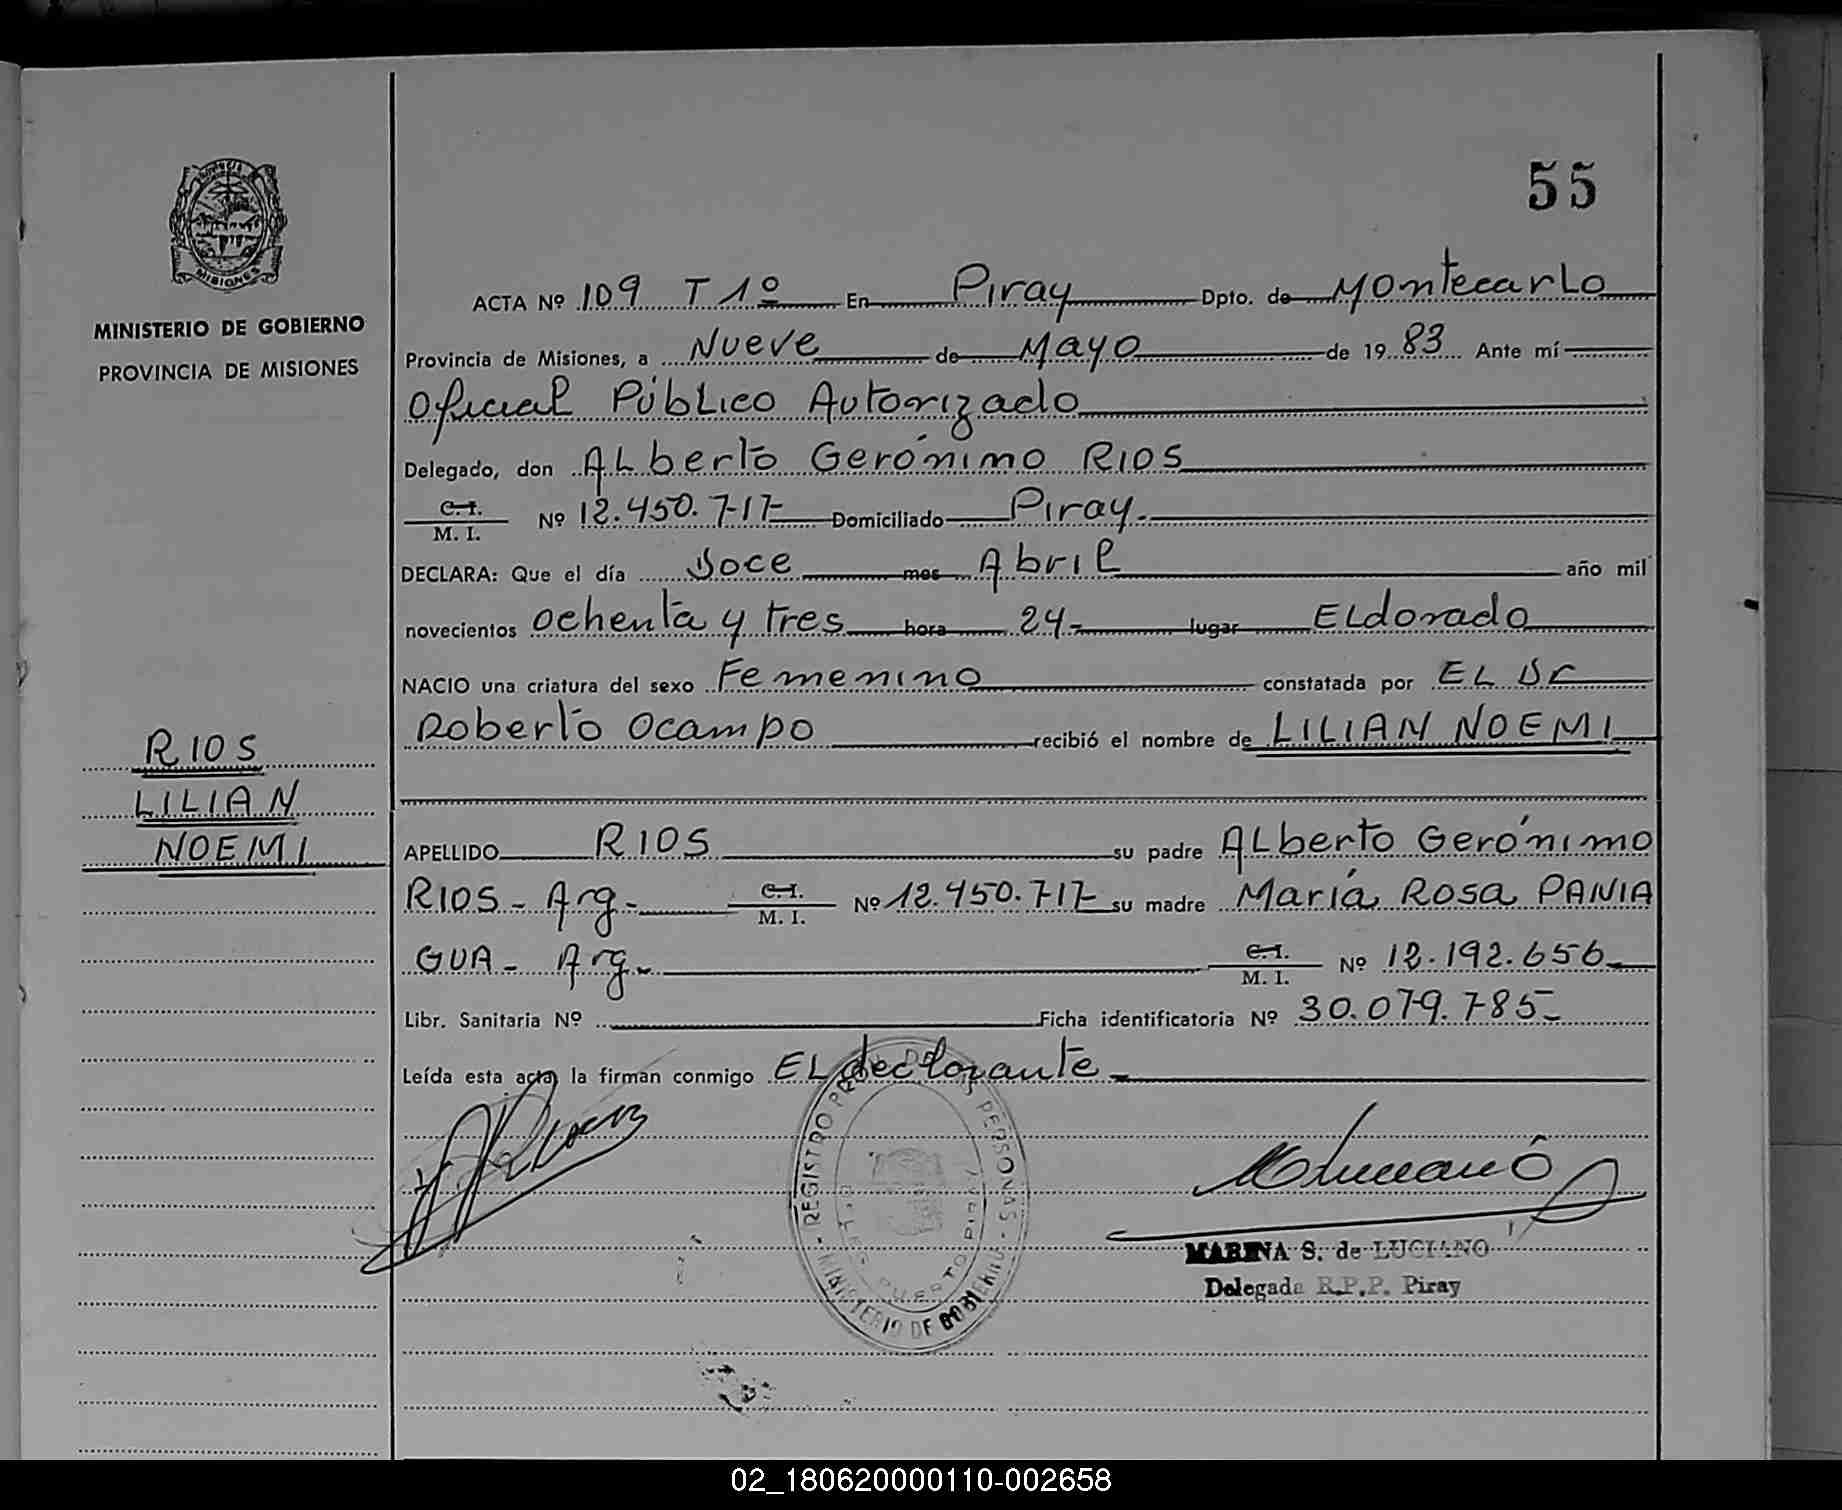 55
MINISTERIO DE GOBIERNO
PROVINCIA DE MISIONES
MISIONES
ACTA Nº 109 T 1º En Piray Dpto. de Montecarlo
Provincia de Misiones, a Nueve de Mayo de 1983 Ante mí
Oficial Público Autorizado
Delegado, don Alberto Gerónimo RIOS
C.I. / M. I. Nº 12.450.717 Domiciliado Piray.
DECLARA: Que el día Doce mes Abril año mil
novecientos ochenta y tres hora 24- lugar Eldorado
NACIO una criatura del sexo Femenino constatada por EL Dr
Roberto Ocampo recibió el nombre de LILIAN NOEMI
RIOS
LILIAN
NOEMI
APELLIDO RIOS su padre Alberto Gerónimo
RIOS - Arg- C.I. / M. I. Nº 12.450.717 su madre María Rosa PANIA
GUA - Arg- C.I. / M. I. Nº 12.192.656
Libr. Sanitaria Nº Ficha identificatoria Nº 30.079.785-
Leída esta acta, la firman conmigo EL declarante-
REGISTRO DE PERSONAS - MINISTERIO DE GOBIERNO
PUERTO PIRAY
MARINA S. de LUCIANO
Delegada R.P.P. Piray
02_180620000110-002658